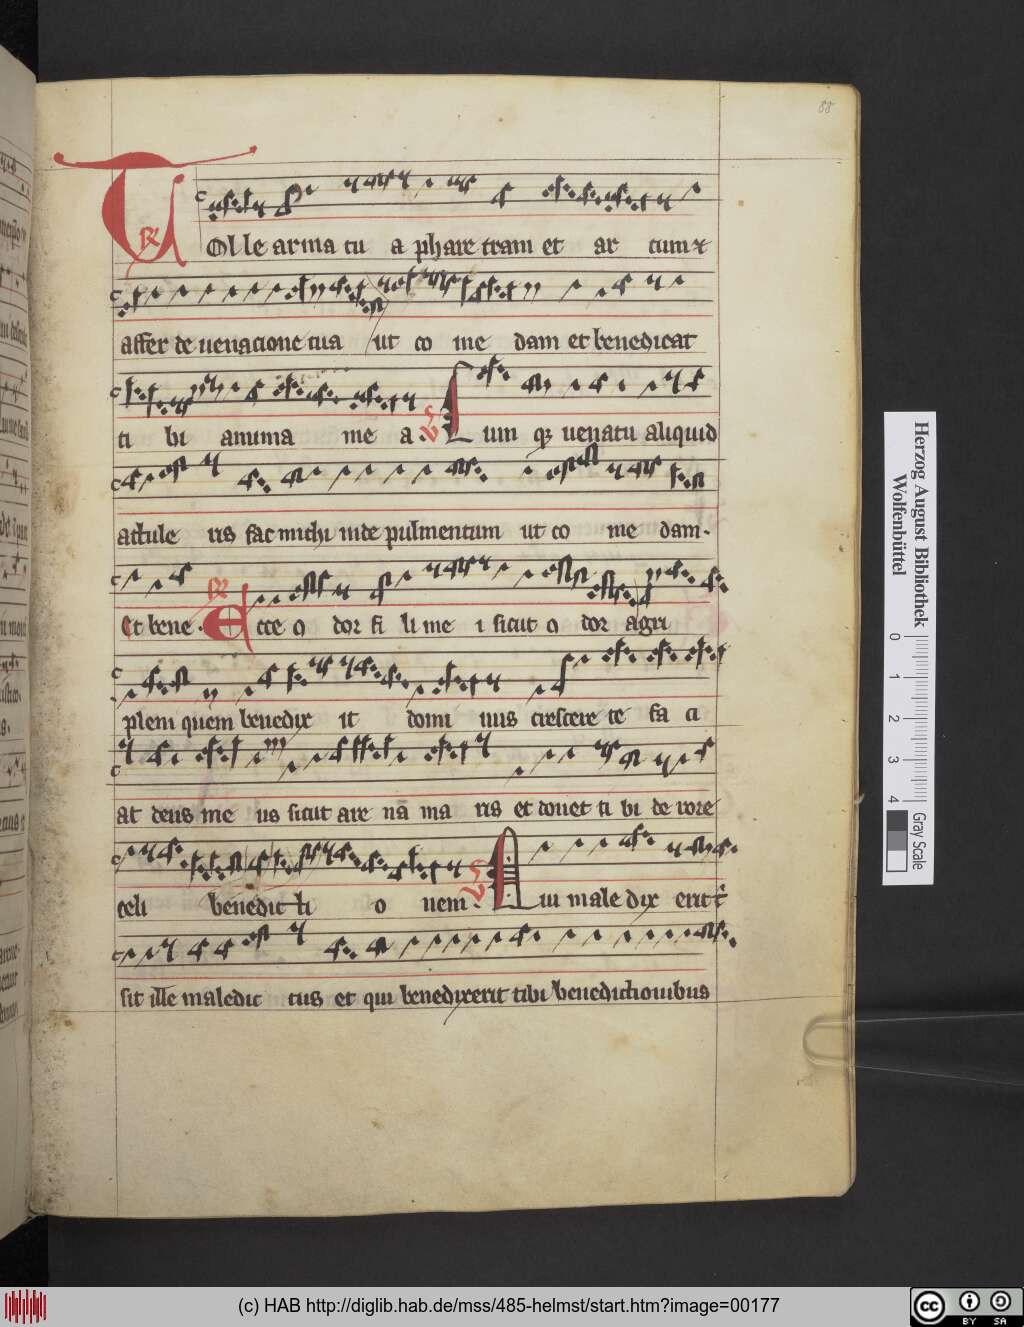 88
TOl le arma tu a phare tram et ar cum ⁊
affer de uenacione tua ut co me dam et benedicat
ti bi anima me a. Cum qꝫ uenatu aliquid
attule ris fac michi inde pulmentum ut co me dam.
Et bene. Ecce o dor fi li me i sicut o dor agri
pleni quem benedix it domi nus crescere te fa ci
at deus me us sicut are nā ma ris et donet ti bi de rore
celi benedic ti o nem. Qui male dix erit t̉
sit ille maledic tus et qui benedixerit tibi benedictionibus
Herzog August Bibliothek
Wolfenbüttel
0 1 2 3 4 Gray Scale
(c) HAB http://diglib.hab.de/mss/485-helmst/start.htm?image=00177
cc BY SA